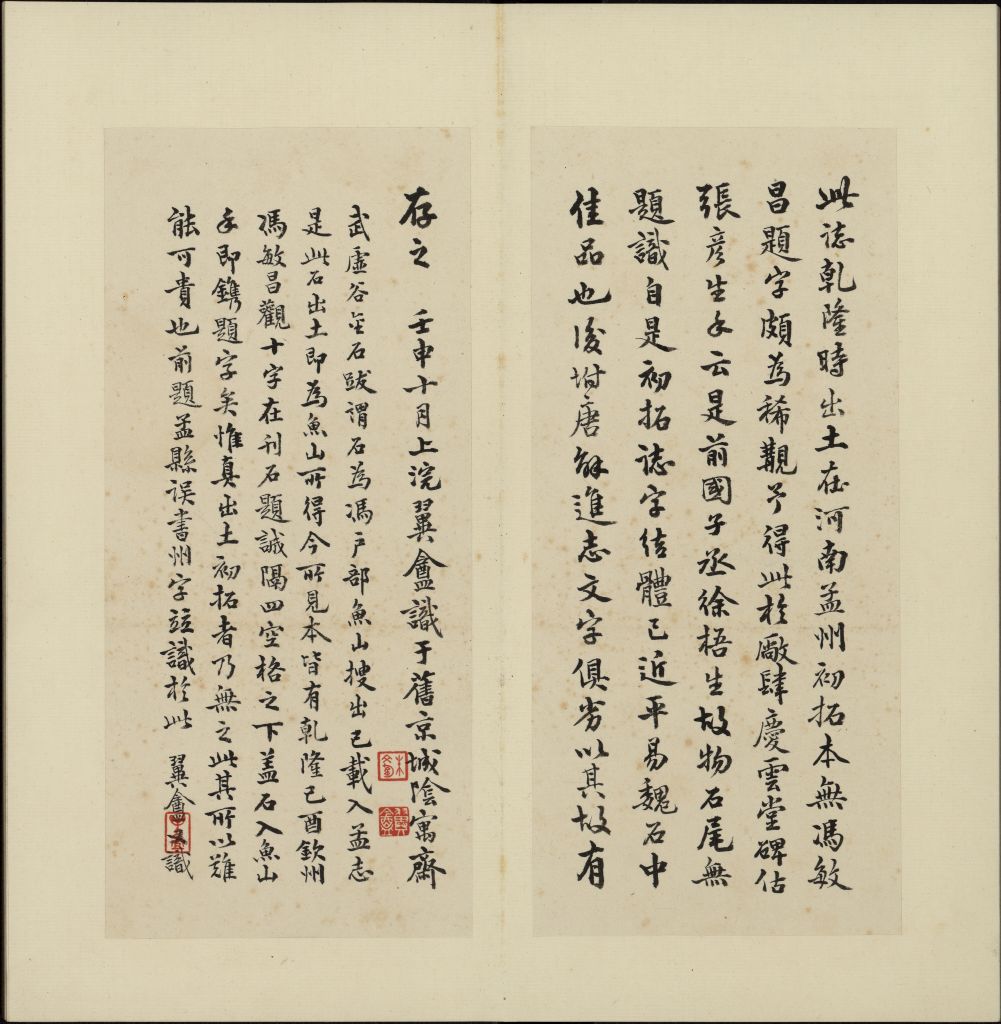 此誌乾隆時出土在河南孟州初拓本無馮敏
昌題字頗為稀覯予得此於廠肆慶雲堂碑估
張彦生手云是前國子丞徐梧生故物石尾無
題識自是初拓誌字结體已近平易魏石中
佳品也後坿唐解進志文字俱劣以其故有
存之　壬申十月上浣翼盦識于舊京城陰寓齋
武虛谷金石跋謂石為馮户部魚山搜出已載入孟志
是此石出土即為魚山所得今所見本皆有乾隆己酉欽州
馮敏昌觀十字在刊石題誠隔四空格之下盖石入魚山
手即鐫題字矣惟真出土初拓者乃無之此其所以難
能可貴也前題孟縣误書州字竝識於此　翼盦又識